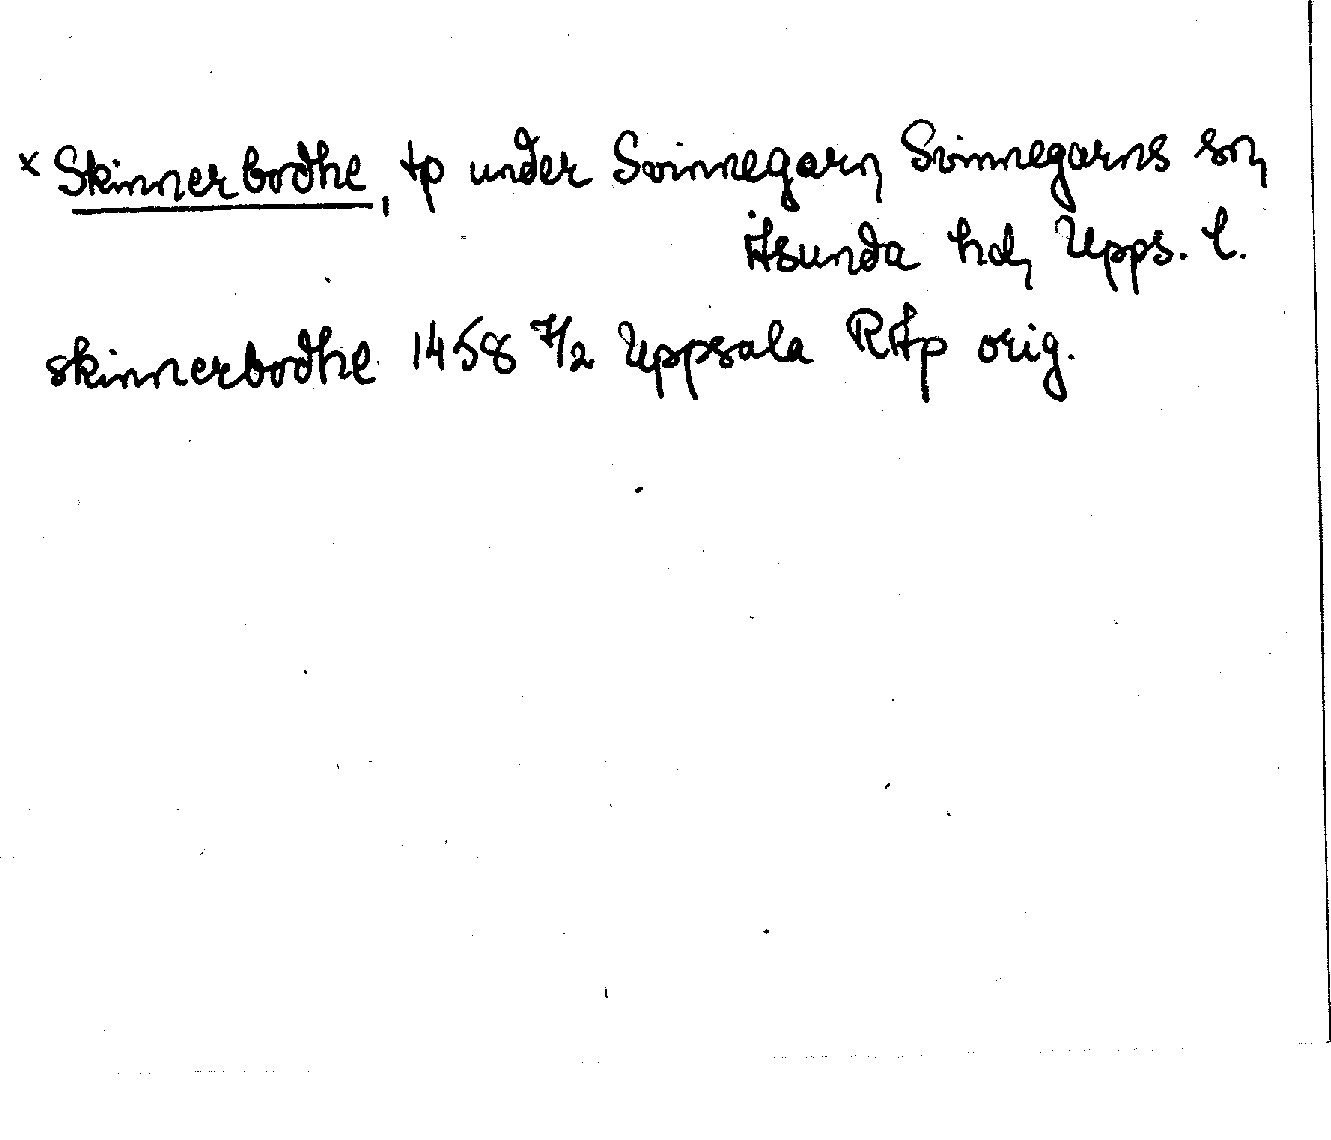 x Skinnerbodhe, tp under Svinnegarn Svinnegarns sn
Åsunda hd, Upps. l.
skinnerbodhe 1458 7/2 Uppsala RAp orig.